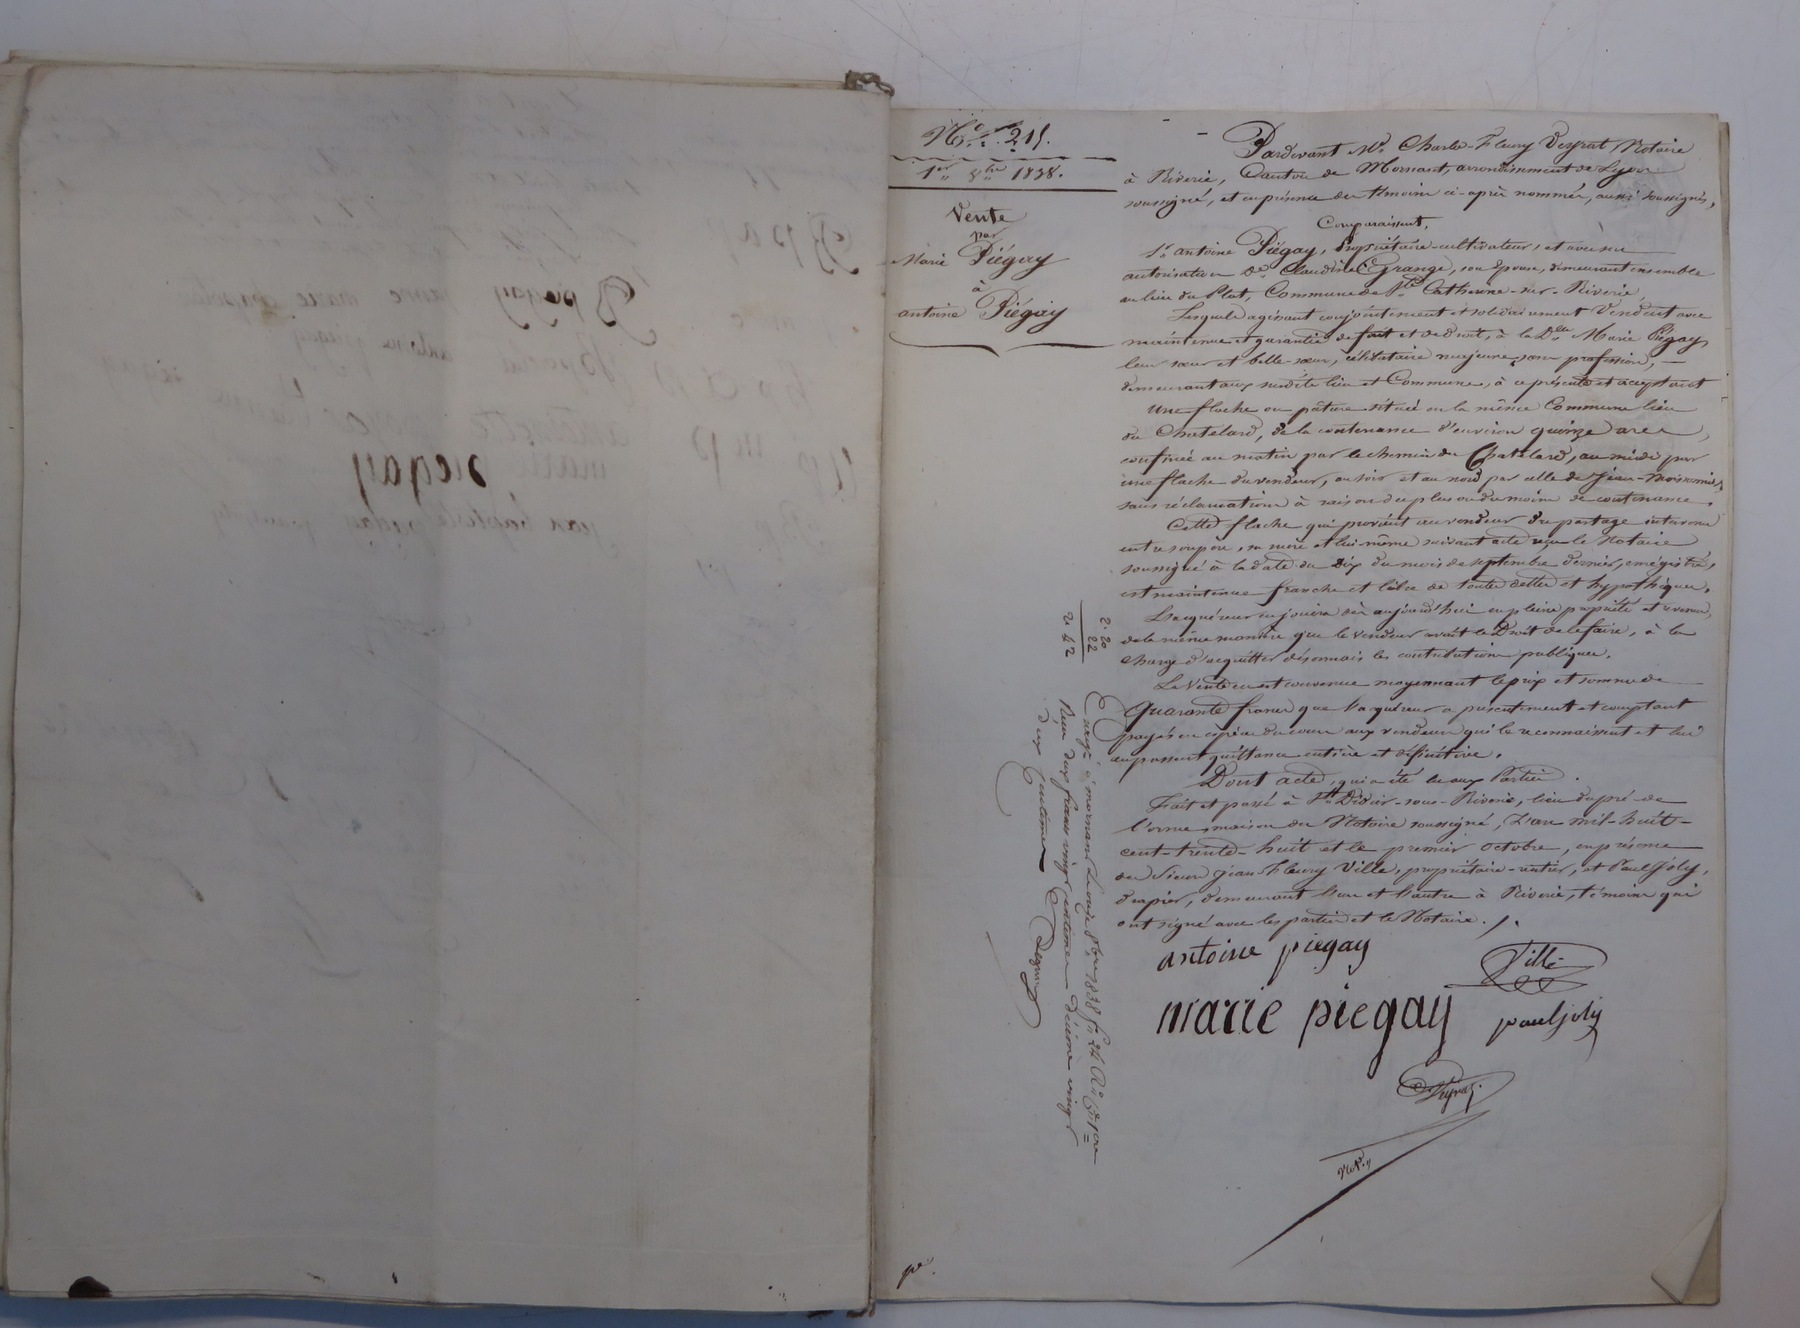 N.º 215.
1er 8bre 1838.
Vente
par
Marie Piégay
à
antoine Piégay
Pardevant Me Charles-Fleury Veyrat Notaire
à Riverie, Canton de Mornant, arrondissement de Lyon
soussigné, et en présence des témoins ci-après nommés, aussi soussignés,
Comparaissent,
Sr antoine Piégay, Propriétaire-cultivateur, et avec son
autorisation De Claudine Grange, son épouse, demeurant ensemble
au lieu du Plat, Commune de Ste Catherine-sur-Riverie,
Lesquels agissant conjointement et solidairement Vendent avec
maintenue et garantie de fait et de droit, à la Dlle Marie Piégay,
leur sœur et belle-sœur, célibataire majeure, sans profession,
demeurant aux susdits lieu et Commune, à ce présente et acceptant
Une flache ou pâture située en la même Commune lieu
du Chatelard, de la contenance d'environ quinze ares,
confinée au matin par le chemin du Chatelard, au midi par
une flache du vendeur, au soir et au nord par celle de Jean-Moissonnier,
sans réclamation à raison du plus ou du moins de contenance.
Cette flache qui provient au vendeur du partage intervenu
entre son père, sa mère et lui-même suivant acte reçu le Notaire
soussigné à la date du Dix du mois de septembre dernier, enregistré,
est maintenue franche et libre de toutes dettes et hypothèques.
L'acquéreur en jouira dès aujourd'hui en pleine propriété et revenus,
de la même manière que le vendeur avait le Droit de le faire, à la
charge d'acquitter désormais les contributions publiques.
La Vente en est convenue moyennant le prix et somme de
Quarante francs que l'acquéreur a présentement et comptant
payés en espèces du cours aux vendeurs qui le reconnaissent et lui
en passent quittance entière et définitive.
Dont acte, qui a été lu aux Parties.
Fait et passé à St Didier-sous-Riverie, lieu du pré de
l'orme, maison du Notaire soussigné, L'an mil-huit-
cent-trente-huit et le premier octobre, en présence
des Sieurs Jean Fleury Ville, propriétaire-rentier, et Paul Joly,
drapier, demeurant l'un et l'autre à Riverie, témoins qui
ont signé avec les parties et le Notaire.
antoine piegay
Ville
marie piegay
paul joly
Veyrat
2.20
22
2.42
Enregé à mornant le onze 8bre 1838 fo 24 Ro Cse 1ere
Reçu deux francs vingt centimes Décime vingt
deux Centimes